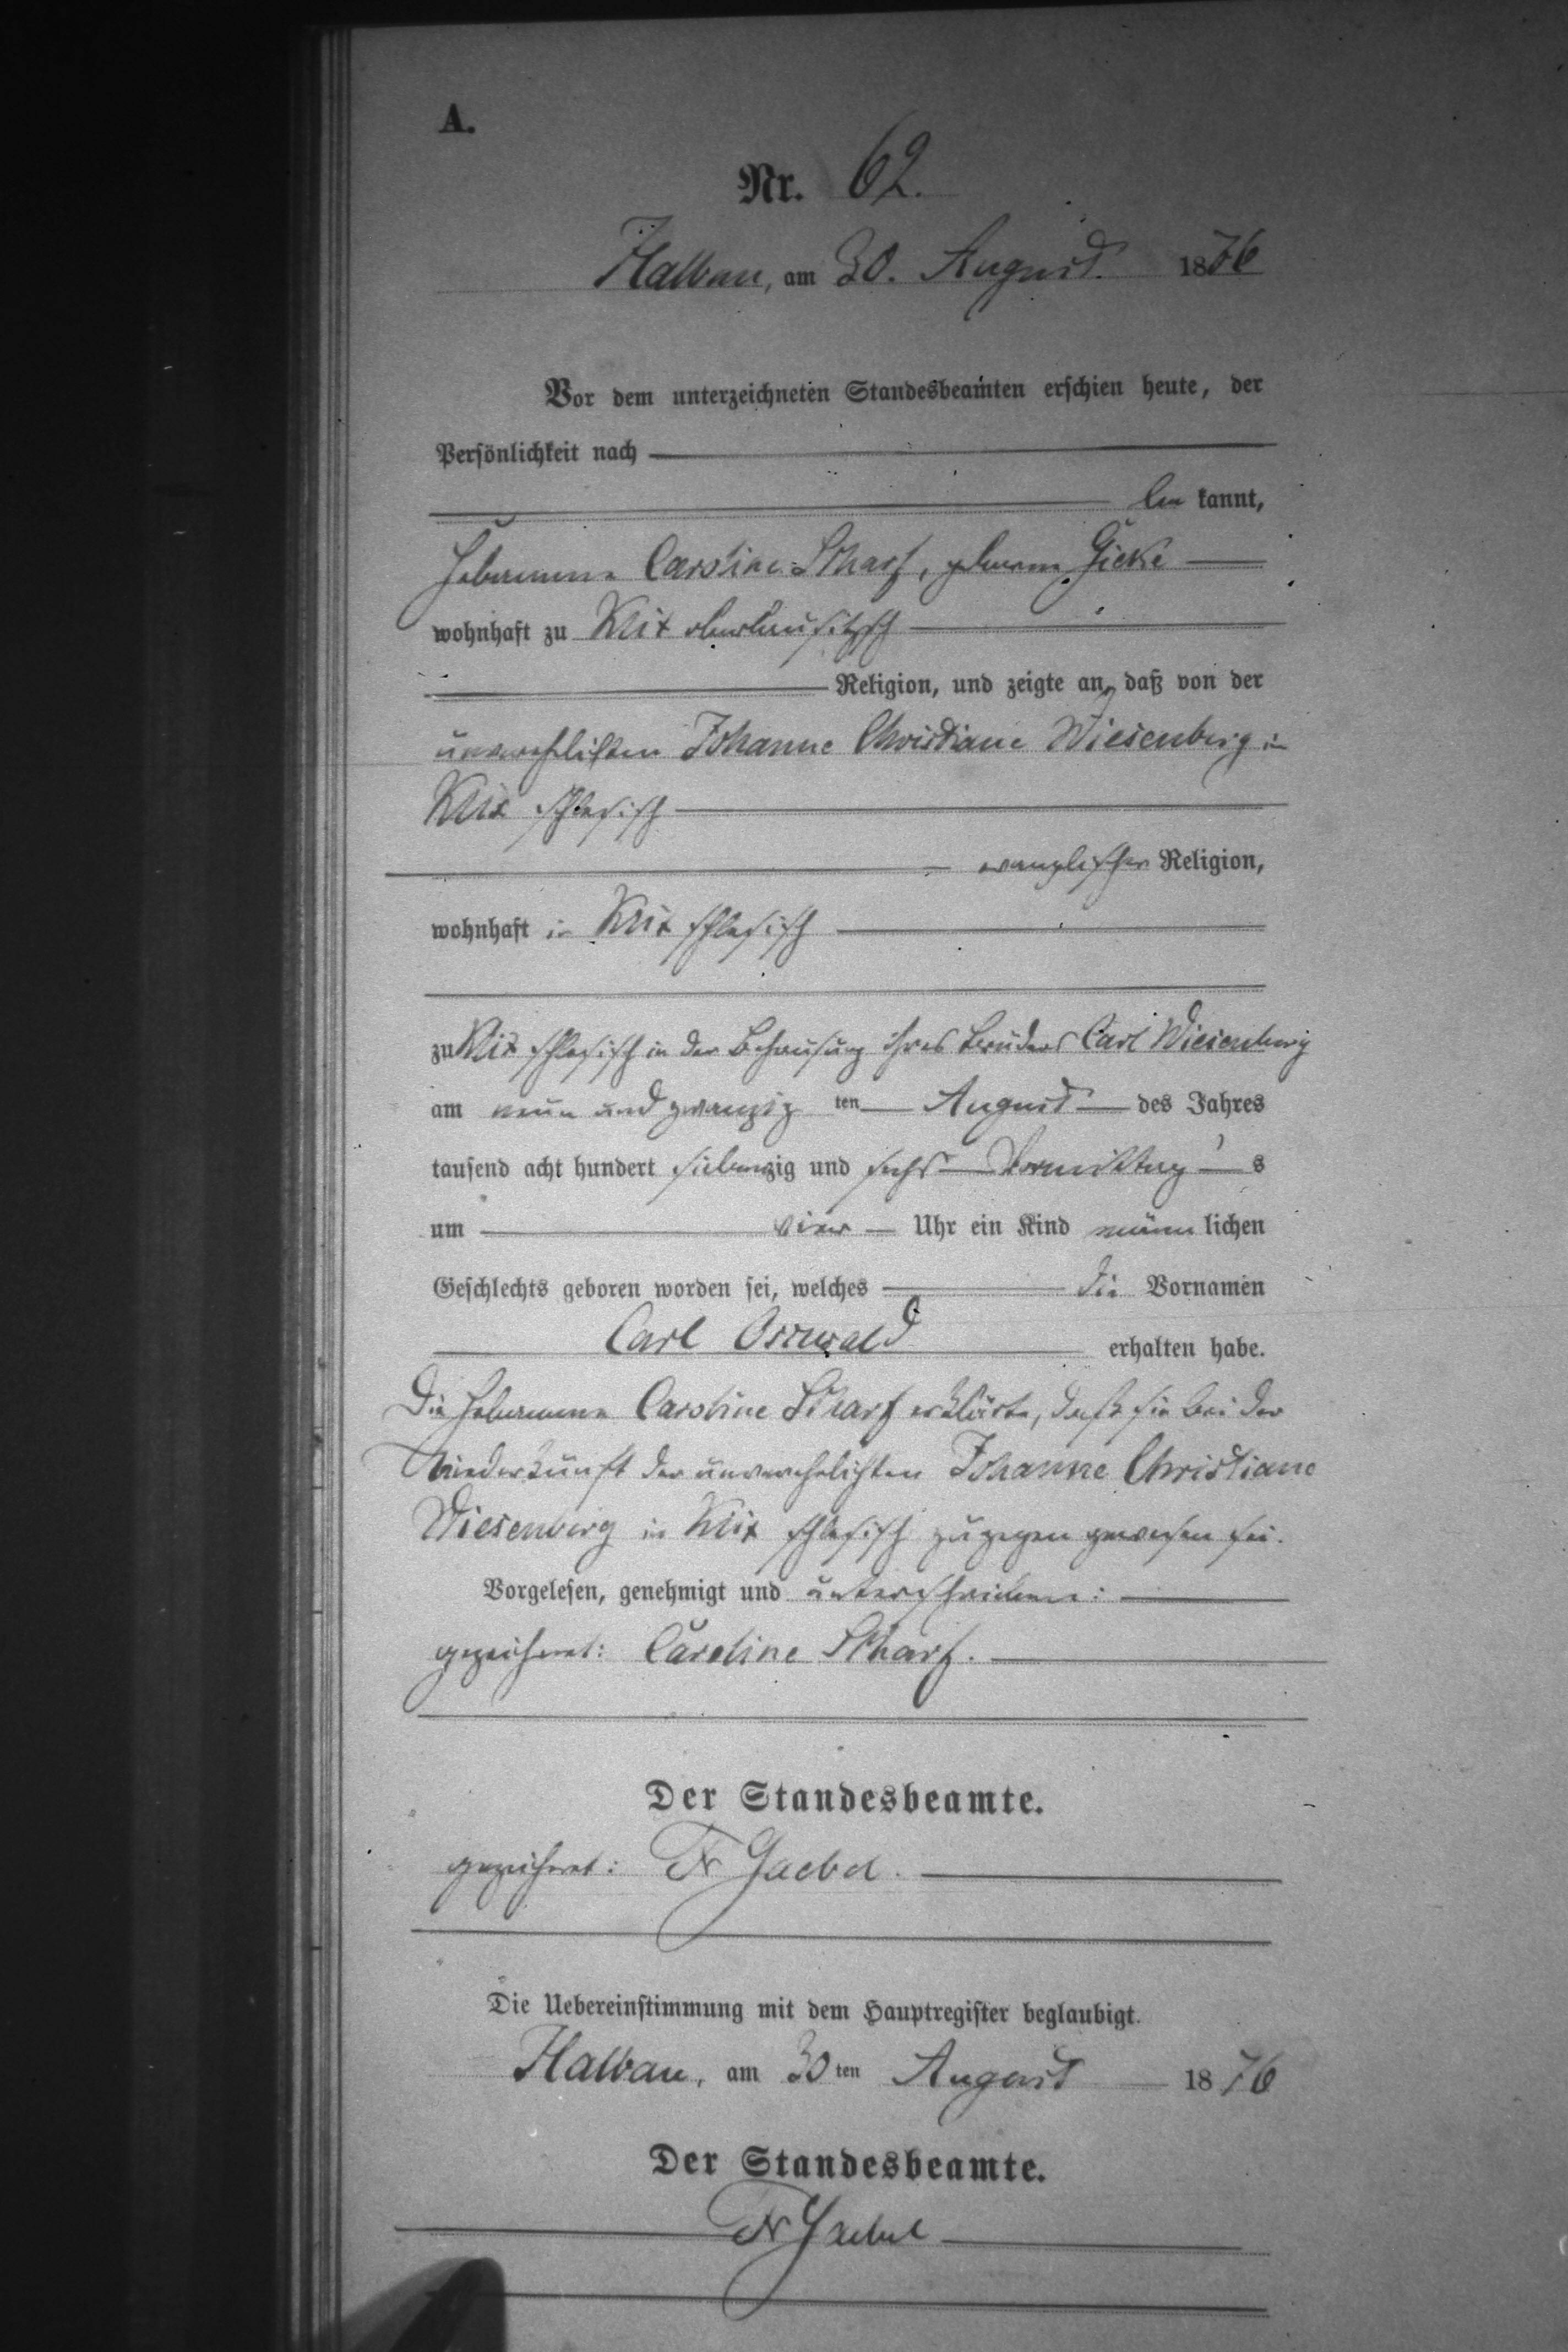 A.
Nr. 62.
Halbau, am 30. August 1876
Vor dem unterzeichneten Standesbeamten erschien heute, der
Persönlichkeit nach
be kannt,
Hebamme Caroline Scharf, geborene
wohnhaft zu Klix oberlausitzsch
Religion, und zeigte an, daß von der
unverehlichten Johanne Christiane Wiesenberg in
Klix schlesisch
evanglischer Religion,
wohnhaft in Klix schlesisch
zu Klix schlesisch in der Behausung ihres Bruders Carl Wiesenberg
am neun und zwanzig ten August des Jahres
tausend acht hundert siebenzig und sechs Vormittag s
um vier Uhr ein Kind männ lichen
Geschlechts geboren worden sei, welches die Vornamen
Carl Osswald erhalten habe.
Die Hebamme Caroline Scharf erklärte, daß sie bei der
Niederkunft der unverehelichten Johanne Christiane
Wiesenberg in Klix schlesisch zugegen gewesen sei.
Vorgelesen, genehmigt und unterschrieben:
gezeichnet: Caroline Scharf.
Der Standesbeamte.
gezeichnet: Fr Gaebel.
Die Uebereinstimmung mit dem Hauptregister beglaubigt.
Halbau, am 30 ten August 1876
Der Standesbeamte.
Fr Gaebel